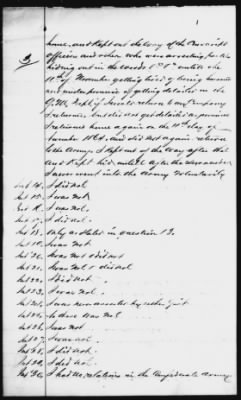 3
home, and Kept out the way of the Provost's
officers and other who were arresting for the
hiding out in the woods
10th of November getting tired of being
and under promise of getting detailed in the
Q.M. Dept of
I returned, but did not get detailed as promised
I returned home again on the 10th day of
1864, and did not again return
to the Army. I Kept out of the way after that
and Kept hid until after the surrender
I never went into the Army voluntarily
Int 14. I did not.
Int 15. I was not
Int 16. I was not.
Int 17. I did not.
Int 18. only as stated in question 13.
Int 19. I was not.
Int 20. I was not I did not
Int 21. I was not I did not
Int 22. I did not.
Int 23. I was not.
Int 24. I was never arrested by
Int 25. there was not
Int 26. I was not
Int 27. I was not.
Int 28. I did not.
Int 29. I did not.
Int 30. I had no relatives in the Confederate Army